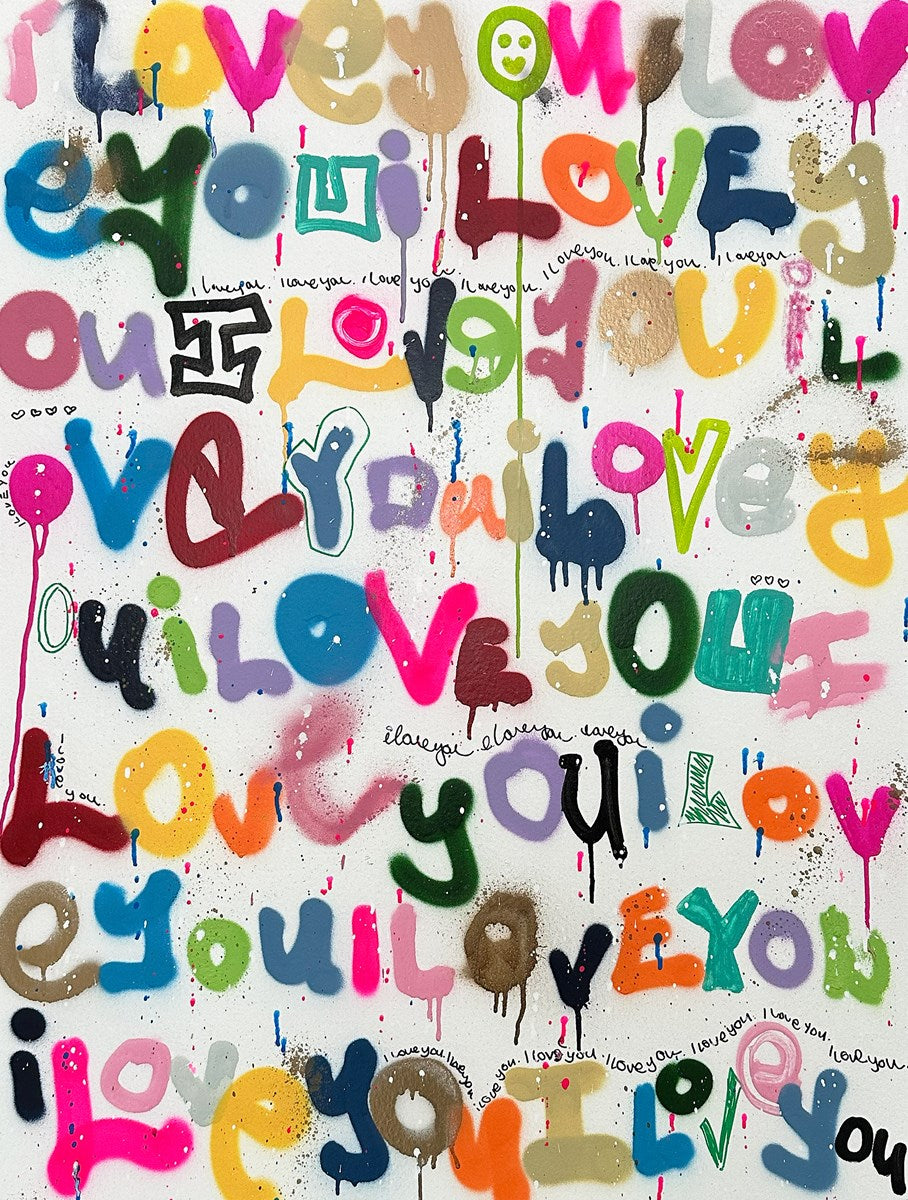 i Lovey ou i Lov
eyou i LOVE y
ou I Love you i L
ove You i Lovey
ou i LOVE you I
Love you i Lov
e you I Love You
i Love you I Love you
i love you. I love you. I love you. I love you.
I love you. I love you. I love you.
I LOVE YOU
i love you i love you i love you
I love you I love you
I love you. I love you. I love you. I love you. I love you. I love you.